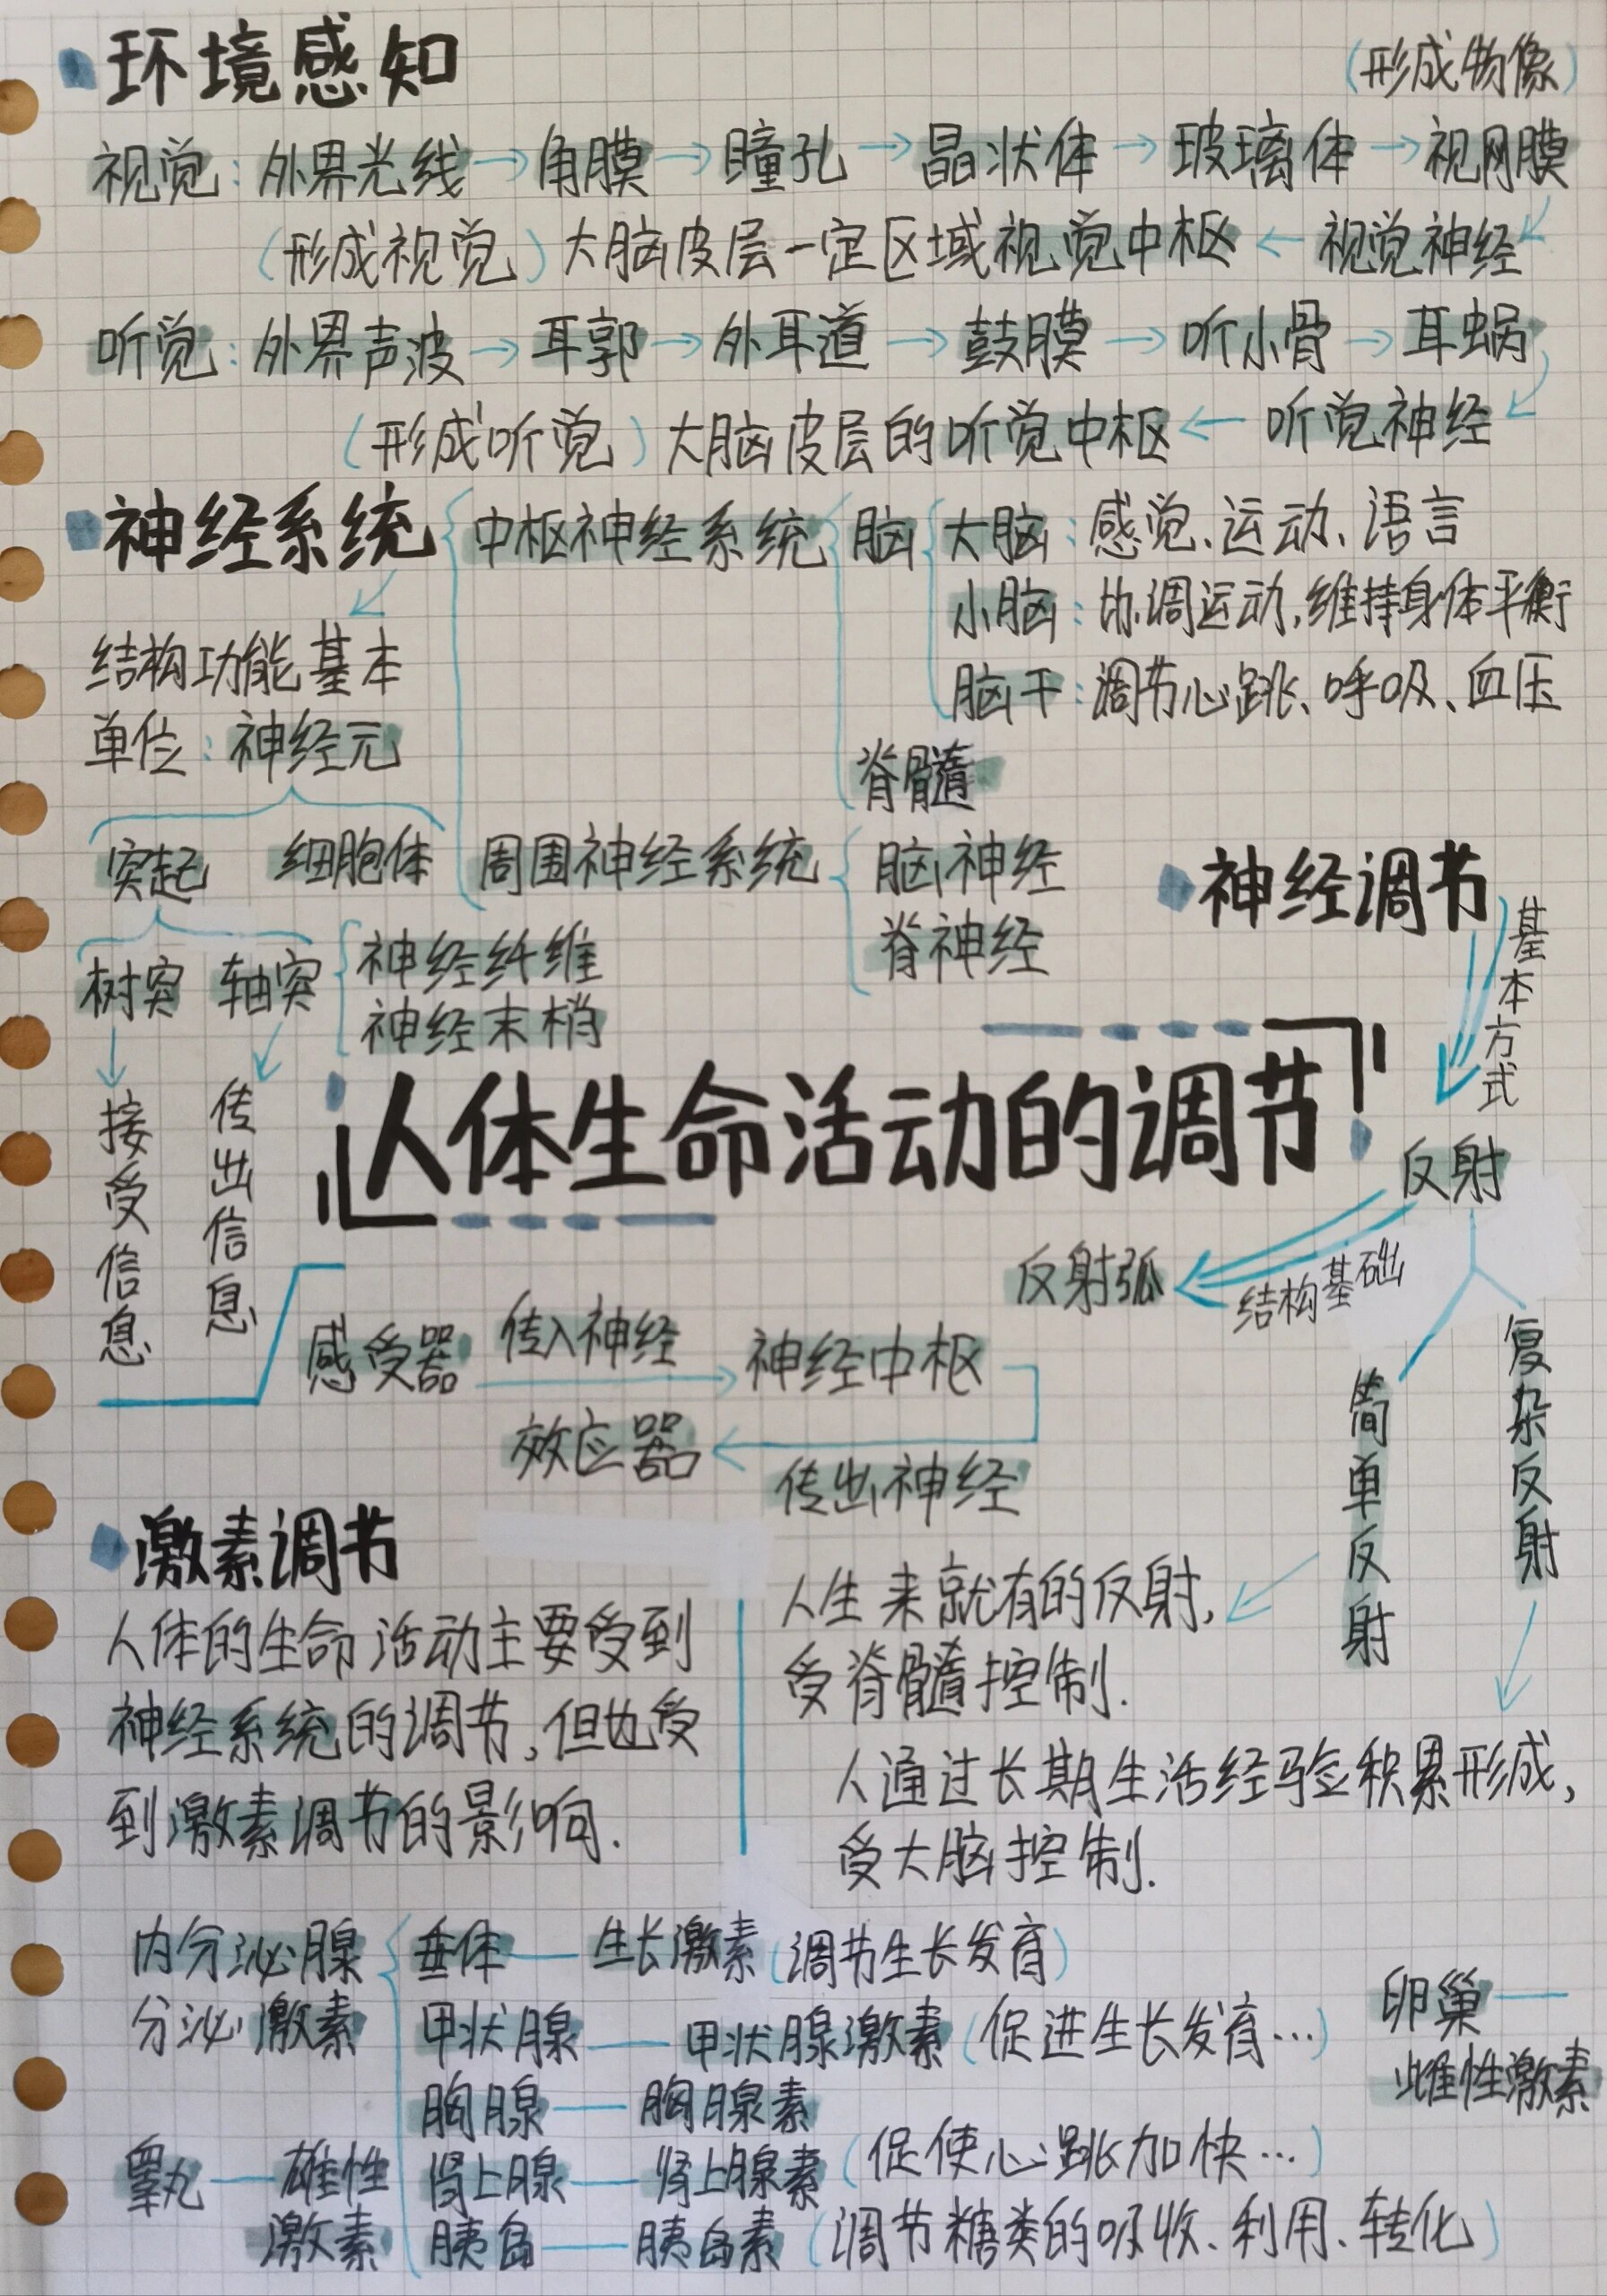 环境感知
(形成物像)
视觉：外界光线→角膜→瞳孔→晶状体→玻璃体→视网膜
(形成视觉)大脑皮层一定区域视觉中枢←视觉神经
听觉：外界声波→耳郭→外耳道→鼓膜→听小骨→耳蜗
(形成听觉)大脑皮层的听觉中枢←听觉神经
神经系统
中枢神经系统
脑
大脑：感觉、运动、语言
小脑：协调运动,维持身体平衡
脑干：调节心跳、呼吸、血压
脊髓
周围神经系统
脑神经
脊神经
结构功能基本
单位：神经元
突起 细胞体
树突 轴突
神经纤维
神经末梢
接受信息
传出信息
神经调节
基本方式
反射
人体生命活动的调节
反射弧
结构基础
感受器 传入神经 神经中枢
效应器 传出神经
简单反射
复杂反射
人生来就有的反射,
受脊髓控制.
人通过长期生活经验积累形成,
受大脑控制.
激素调节
人体的生命活动主要受到
神经系统的调节,但也受
到激素调节的影响.
内分泌腺
分泌激素
垂体—生长激素(调节生长发育)
甲状腺—甲状腺激素(促进生长发育…)
胸腺—胸腺素
肾上腺—肾上腺素(促使心跳加快…)
胰岛—胰岛素(调节糖类的吸收、利用、转化)
睾丸—雄性
激素
卵巢—
雌性激素